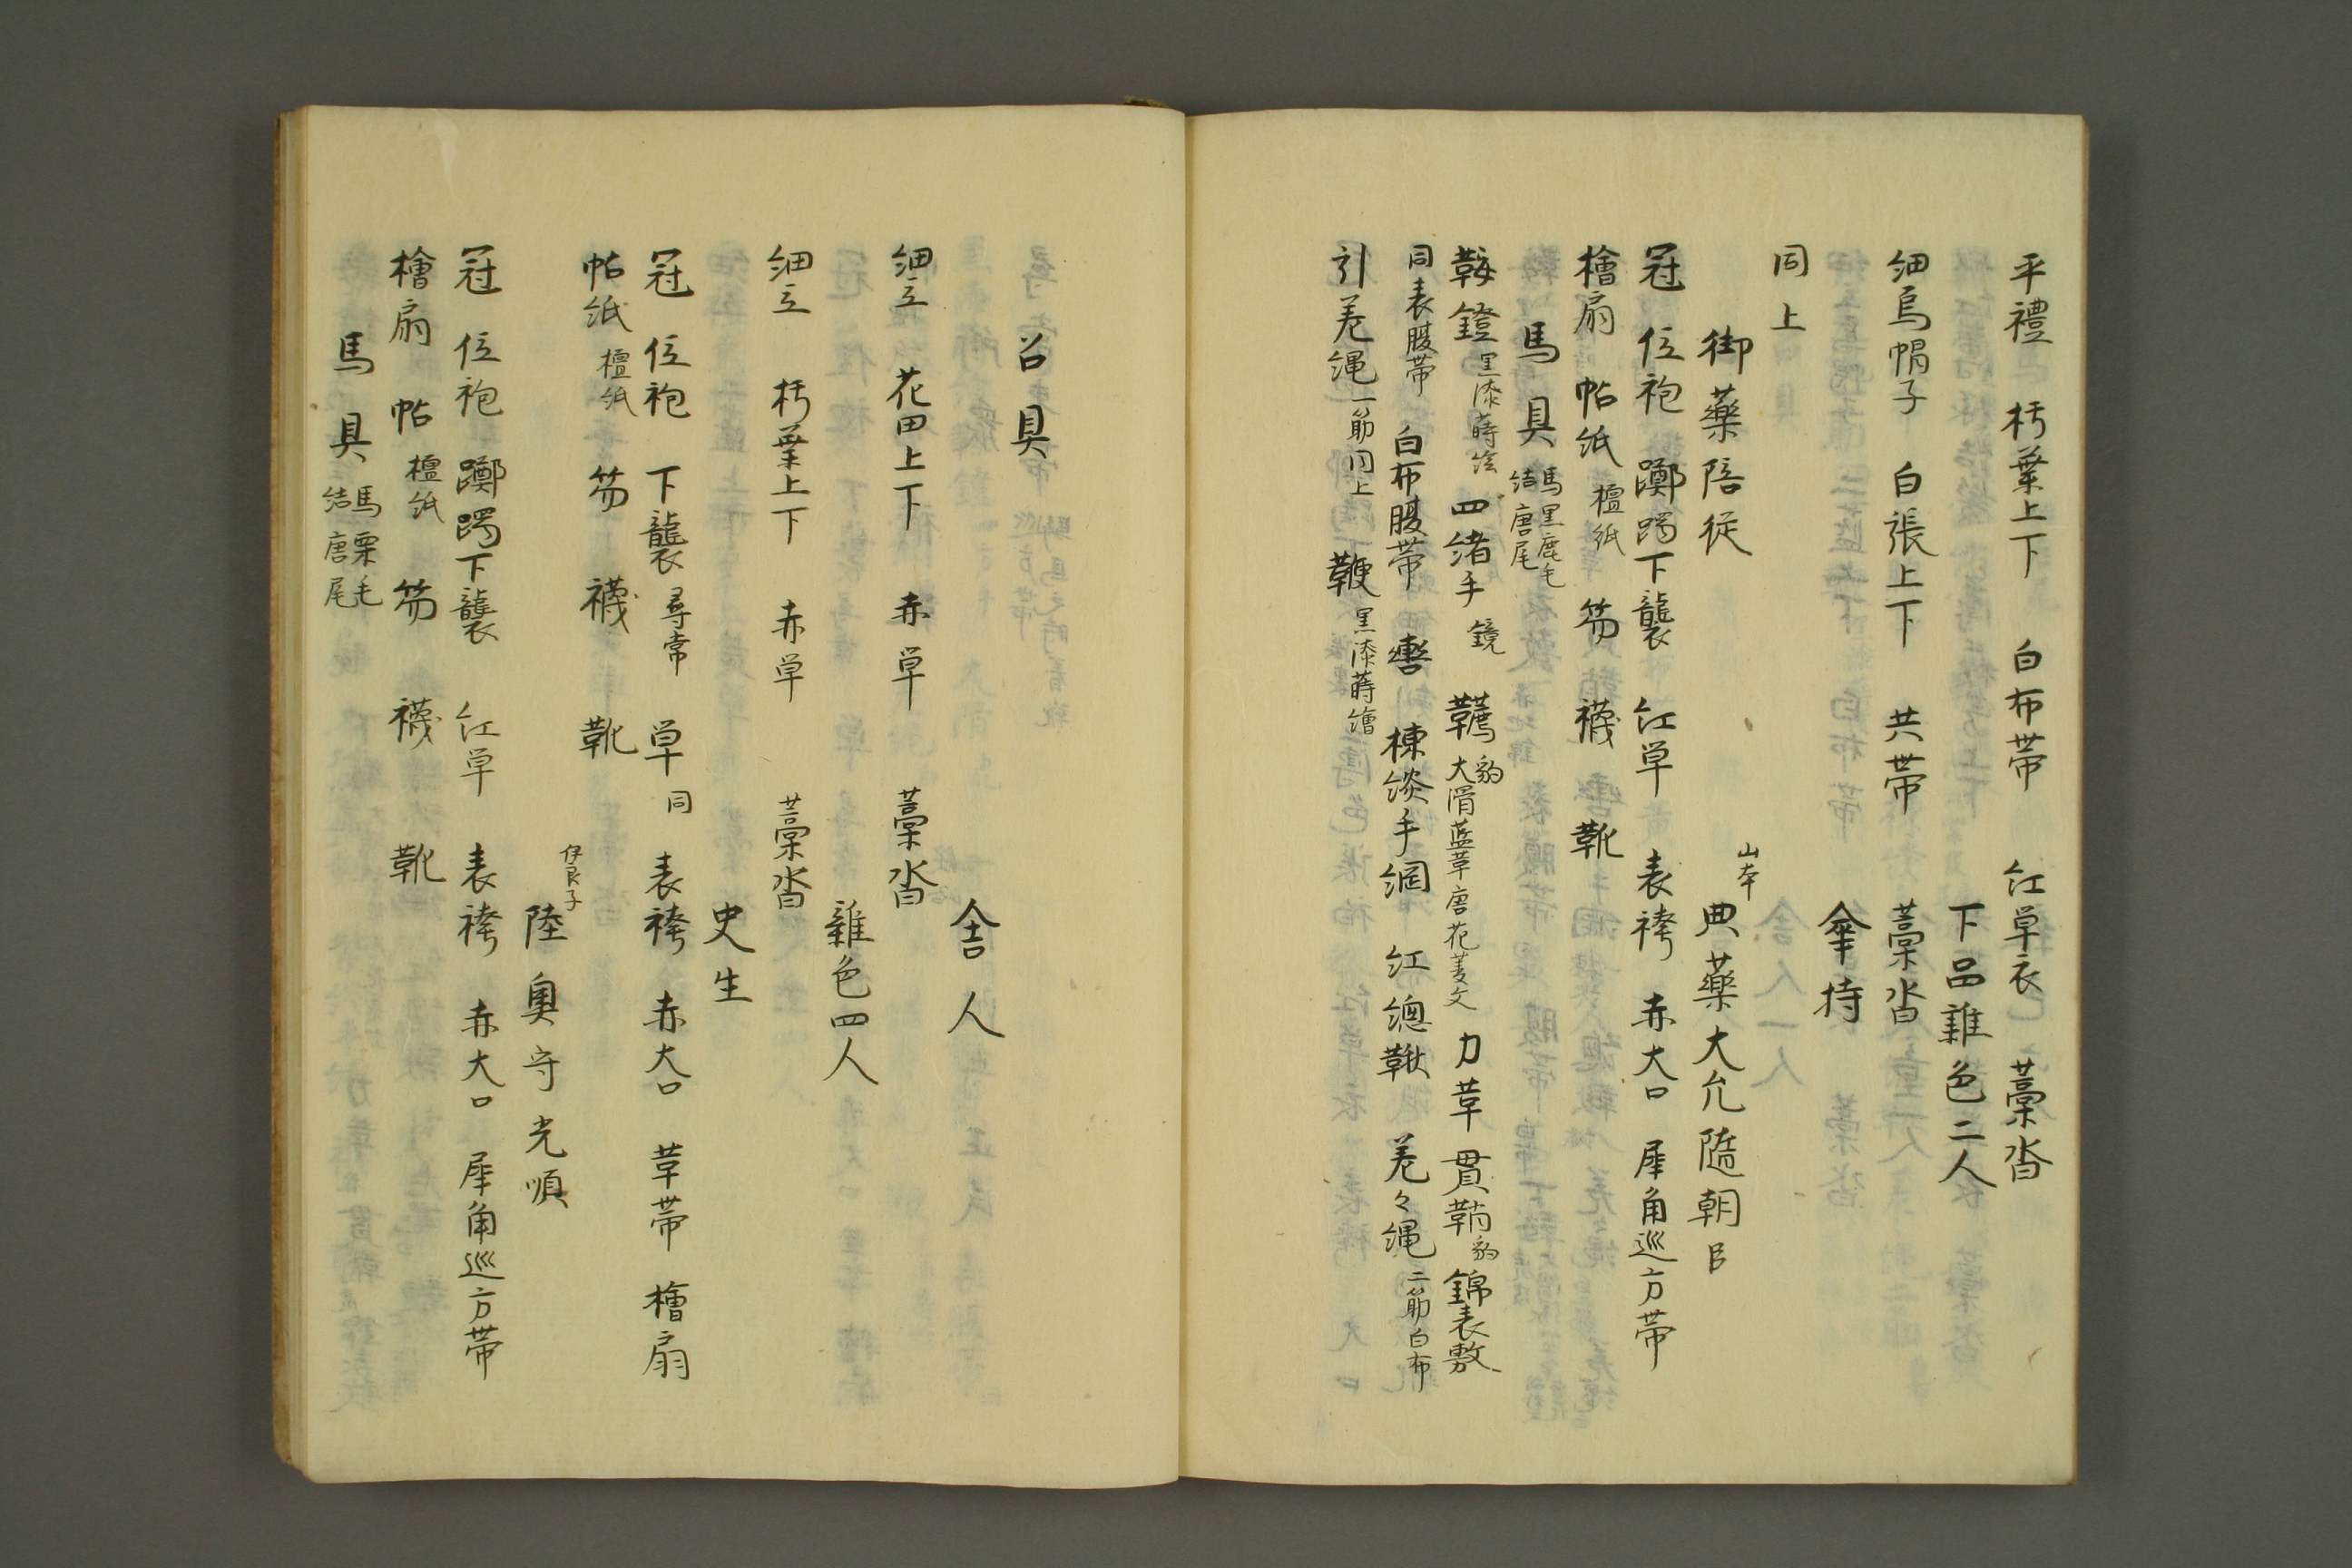 平禮　朽葉上下　白布帯　紅單衣　藁沓
下品雜色二人
細烏帽子　白張上下　共帯　藁沓
傘持
同上
御藥陪従　山本　典藥大允隨朝臣
冠　位袍　躑躅下襲　紅單　表袴　赤大口　犀角巡方帯
檜扇　帖紙　檀紙　笏　襪　靴
馬具　馬黒鹿毛　結唐尾
鞍鐙　黒漆蒔絵　四緒手　鏡　韉　豹　大滑藍革唐花菱文　力革　貫鞘　豹　錦表敷
同表腹帯　白布腹帯　轡　楝緂手綱　紅總鞦　差々縄　二筋白布
引差縄　一筋同上　鞭　黒漆蒔繪
召具
舎人
細立　花田上下　赤単　藁沓
雜色四人
細立　朽葉上下　赤単　藁沓
史生
冠　位袍　下襲　尋常　単　同　表袴　赤大口　革帯　檜扇
帖紙　檀紙　笏　襪　靴
伊良子　陸奥守光順
冠　位袍　躑躅下襲　紅単　表袴　赤大口　犀角巡方帯
檜扇　帖　檀紙　笏　襪　靴
馬具　馬栗毛　結唐尾